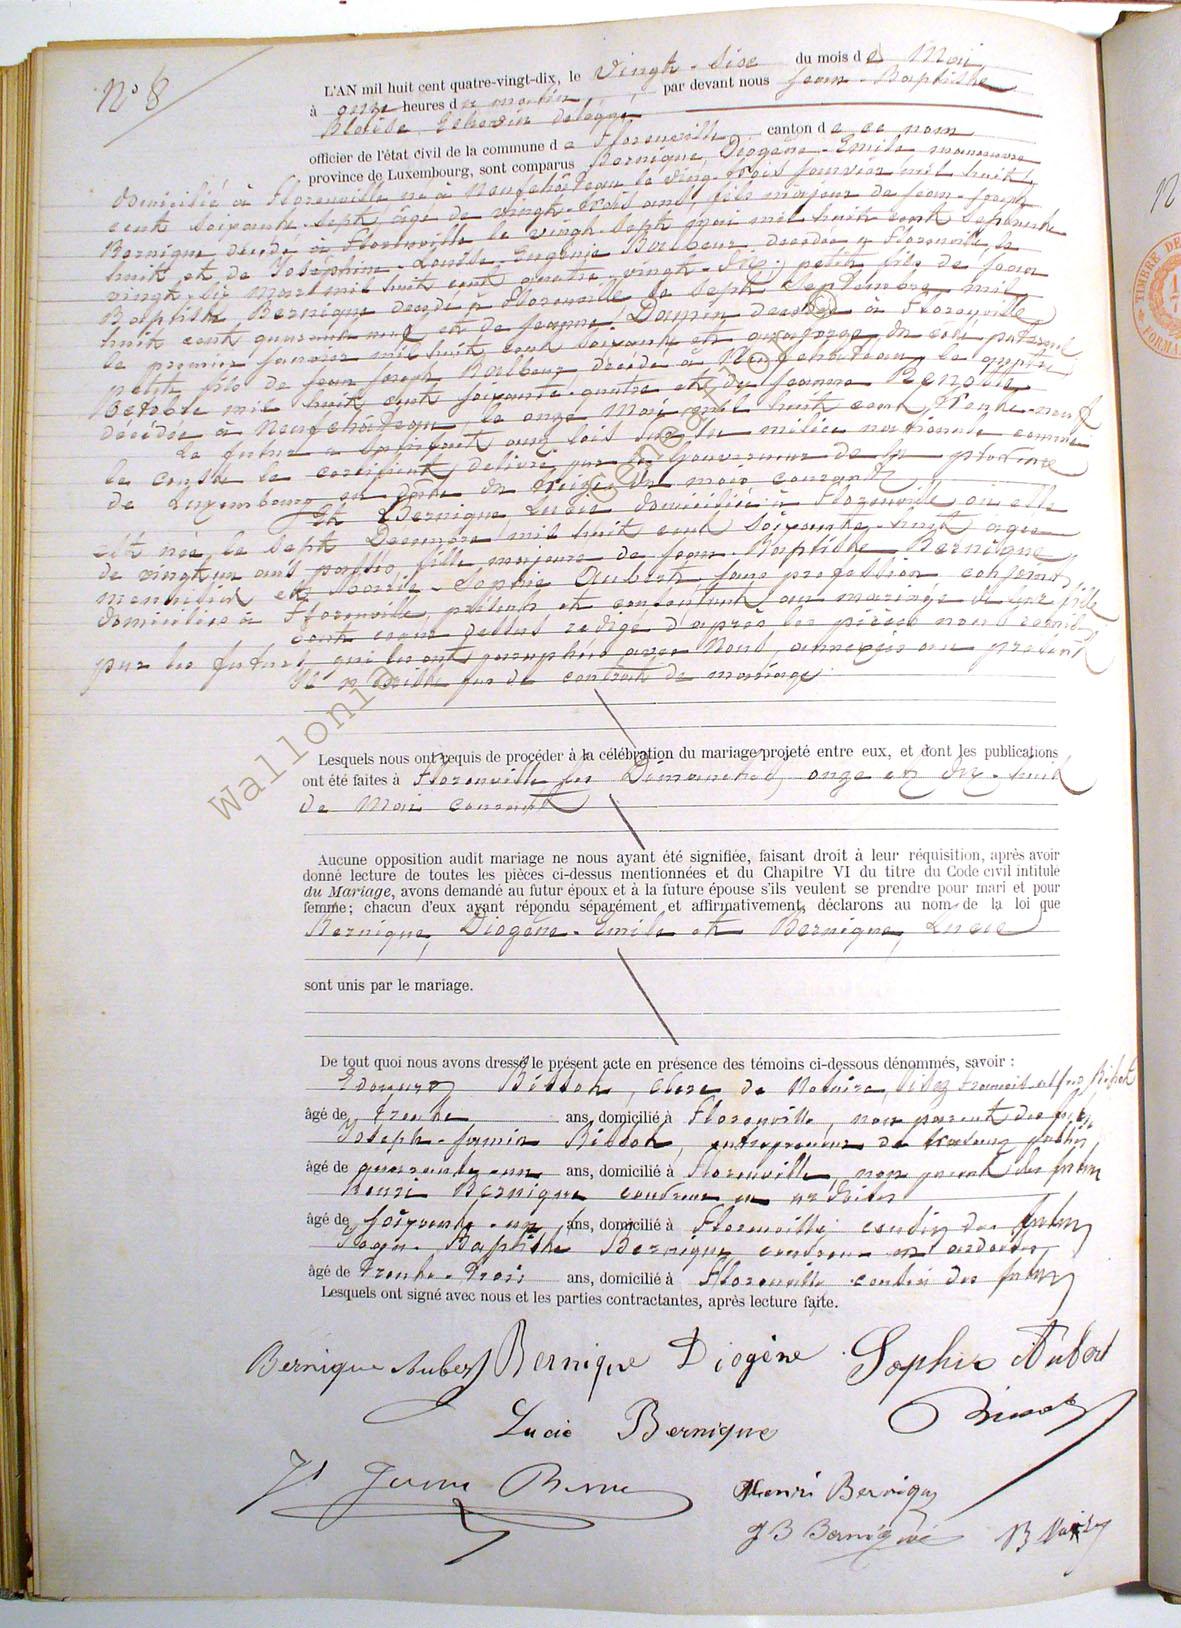 N° 8
L'AN mil huit cent quatre-vingt-dix, le vingt-six du mois de Mai
à onze heures du matin, par devant nous Jean-Baptiste
Echevin délégué
officier de l'état civil de la commune de Florenville, canton de ce nom
province de Luxembourg, sont comparus Bernique, Diogène-Emile manœuvre
domicilié à Florenville né à Neufchâteau le vingt-trois Janvier mil huit
cent soixante-sept, âgé de vingt-trois ans, fils majeur de Jean-Joseph
Bernique décédé à Florenville le vingt-sept mai mil huit cent septante
huit et de Joséphine-Louise-Eugénie Balbeur décédée à Florenville le
vingt-six Mars mil huit cent quatre-vingt-dix; petit fils de Jean
Baptiste Bernique décédé à Florenville le sept Septembre mil
huit cent quarante neuf et de Jeanne décédée à Florenville
le premier Janvier mil huit cent soixante et du coté paternel
petit fils de Jean Joseph Balbeur décédé à Neufchâteau le quatre
Octobre mil huit cent soixante-quatre et de Jeanne Renoble
décédée à Neufchâteau, le onze Mai mil huit cent trente-neuf
Le futur a satisfait aux lois sur la milice nationale comme
le constate le certificat délivré par le Gouverneur de la province
de Luxembourg en date du treize du mois courant
Et Bernique, Lucie domiciliée à Florenville où elle
est née, le sept Décembre mil huit cent soixante-huit âgée
de vingt un ans passés, fille majeure de Jean-Baptiste Bernique,
menuisier et Marie-Sophie Aubert, sans profession conjoints,
domiciliés à Florenville, présents et consentant au mariage de leur fille
dont ci-dessus rédigé d'après les pièces nous remises
par les futurs, qui les ont paraphées avec Nous, annexées au présent
Il n'existe pas de contrat de mariage
Lesquels nous ont requis de procéder à la célébration du mariage projeté entre eux, et dont les publications
ont été faites à Florenville les Dimanches, onze et dix-huit
de Mai courant
Aucune opposition audit mariage ne nous ayant été signifiée, faisant droit à leur réquisition, après avoir
donné lecture de toutes les pièces ci-dessus mentionnées et du Chapitre VI du titre du Code civil intitulé
du Mariage, avons demandé au futur époux et à la future épouse s'ils veulent se prendre pour mari et pour
femme; chacun d'eux ayant répondu séparément et affirmativement, déclarons au nom de la loi que
Bernique, Diogène-Emile et Bernique, Lucie
sont unis par le mariage.
De tout quoi nous avons dressé le présent acte en présence des témoins ci-dessous dénommés, savoir :
Edouard clerc de Notaire,
âgé de trente ans, domicilié à Florenville, non parent des futurs
Joseph-Firmin entrepreneur de travaux publics,
âgé de quarante-un ans, domicilié à Florenville, non parent des futurs
Henri Bernique couvreur en ardoises
âgé de soixante-un ans, domicilié à Florenville cousin des futurs
Jean-Baptiste Bernique couvreur en ardoises,
âgé de trente-trois ans, domicilié à Florenville cousin des futurs
Lesquels ont signé avec nous et les parties contractantes, après lecture faite.
Bernique Aubert Bernique Diogène Sophie Aubert
Lucie Bernique
Henri Bernique
J B Bernique